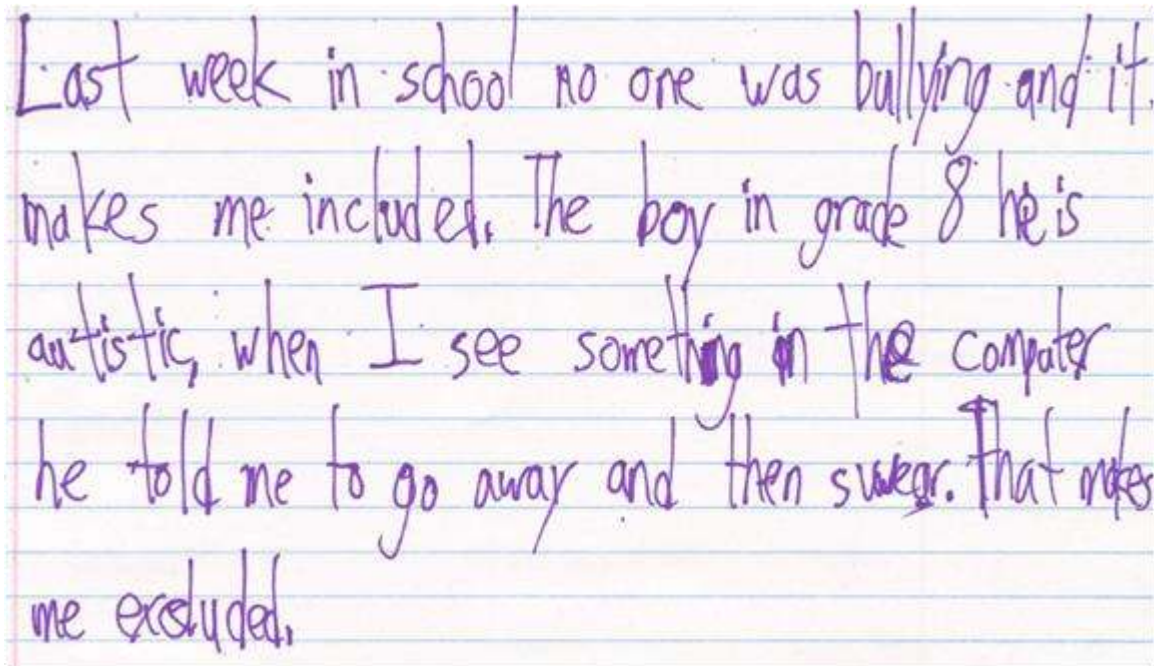 Last week in school no one was bullying and it
makes me included. The boy in grade 8 he is
autistic, when I see something in the computer
he told me to go away and then swear. That makes
me excluded.